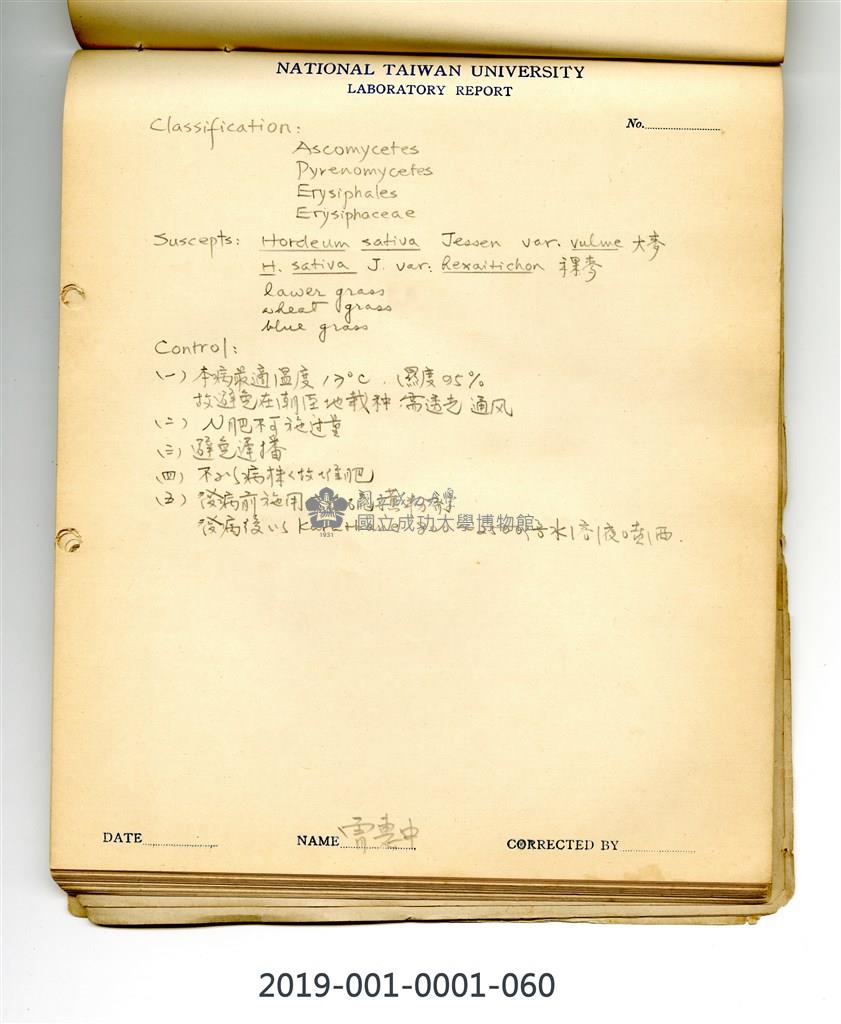 NATIONAL TAIWAN UNIVERSITY
LABORATORY REPORT
No.
Classification:
Ascomycetes
Pyrenomycetes
Erysiphales
Erysiphaceae
Suscepts: Hordeum sativa Jessen var. vulme 大麥
H. sativa J. var: hexaitichon 裸麥
lawer grass
wheat grass
blue grass
Control:
(一) 本病最適溫度 17°C. 濕度 95%
故避免在潮湿地栽种 需透光 通风
(二) N肥不可施过量
(三) 避免遲播
(四) 不以病株 堆肥
(五) 發病前施用
發病後以 水溶液噴洒.
國立成功大學博物館
1931
DATE
NAME 曹 中
CORRECTED BY
2019-001-0001-060